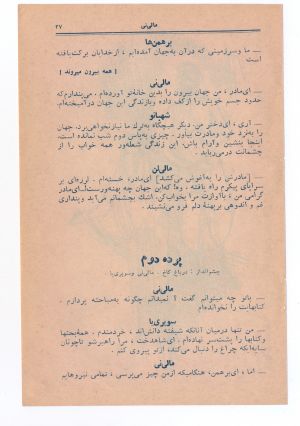 مالی‌نی
۲۷
برهمن‌ها
— ما وسرزمینی که درآن به‌جهان آمده‌ایم ، ازخدایان برکت‌یافته
است
[ همه بیرون میروند ]
مالی‌نی
— ای‌مادر ، من جهان بیرون را بدین خانه‌تو آورده‌ام . می‌پندارم‌که
حدود جسم خویش را ازکف داده وبازندگی این جهان درآمیخته‌ام.
شهبانو
— آری ، ای‌دختر من. دیگر هیچگاه به‌ترك ما نیازنخواهی‌برد. جهان
را به‌نزد خود ومادرت بیاور. چیزی به‌پاس دوم شب نمانده است،
اینجا بنشین وآرام باش. این زندگی شعله‌ور همه خواب را از
چشمانت درمی‌رباید .
مالی‌نی
— [مادرش را به‌آغوش می‌کشد] ای‌مادر، خسته‌ام . لرزه‌ای بر
سراپای پیکرم راه یافته . وه! که‌این جهان چه پهنه‌ورست! ای‌مادر
گرامی من ، باآوازت مرا بخواب‌کن. اشك بچشمانم می‌آید وپنداری
غم و اندوهی برپهنهٔ دلم فرو می‌نشیند .
پرده دوم
پیش‌انداز : درباغ کاخ . مالی‌نی وسوپری‌یا.
مالی‌نی
— بتو چه میتوانم گفت ؟ نمیدانم چگونه به‌مباحثه پردازم .
کتابهایت را نخوانده‌ام
سوپری‌یا
— من تنها درمیان آنانکه شیفته دانش‌اند ، خردمندم . همهٔبحثها
وکتابها را پشت‌سر نهاده‌ام . ای‌شاهدخت ، مرا راهبرشو تاچونان
سایه‌ایکه چراغ را دنبال می‌کند، ازتو پیروی کنم .
مالی‌نی
— اما ، ای‌برهمن، هنگامیکه ازمن چیز می‌پرسی ، تمامی نیروهایم